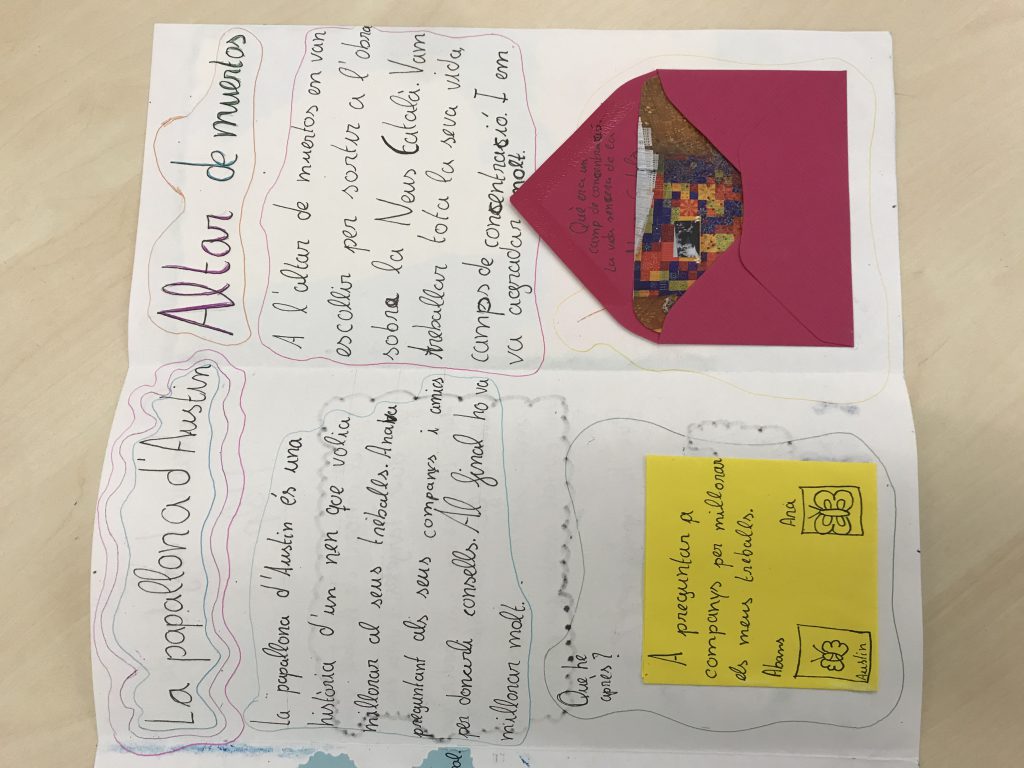 La papallona d'Austin
La papallona d'Austin és una
història d'un nen que volia
millorar al seus treballs. Anava
preguntant als seus companys i amics
per donarli consells. Al final ho va
millorar molt.
Què he
après?
A preguntar a
companys per millorar
els meus treballs.
Abans
Ara
Austin
Altar de muertos
A l'altar de muertos en van
escollir per sortir a l'obra
sobre la Neus Català. Vam
treballar tota la seva vida,
camps de concentració. I em
va agradar molt.
Què era un
camp de concentració.
La vida sencera de la